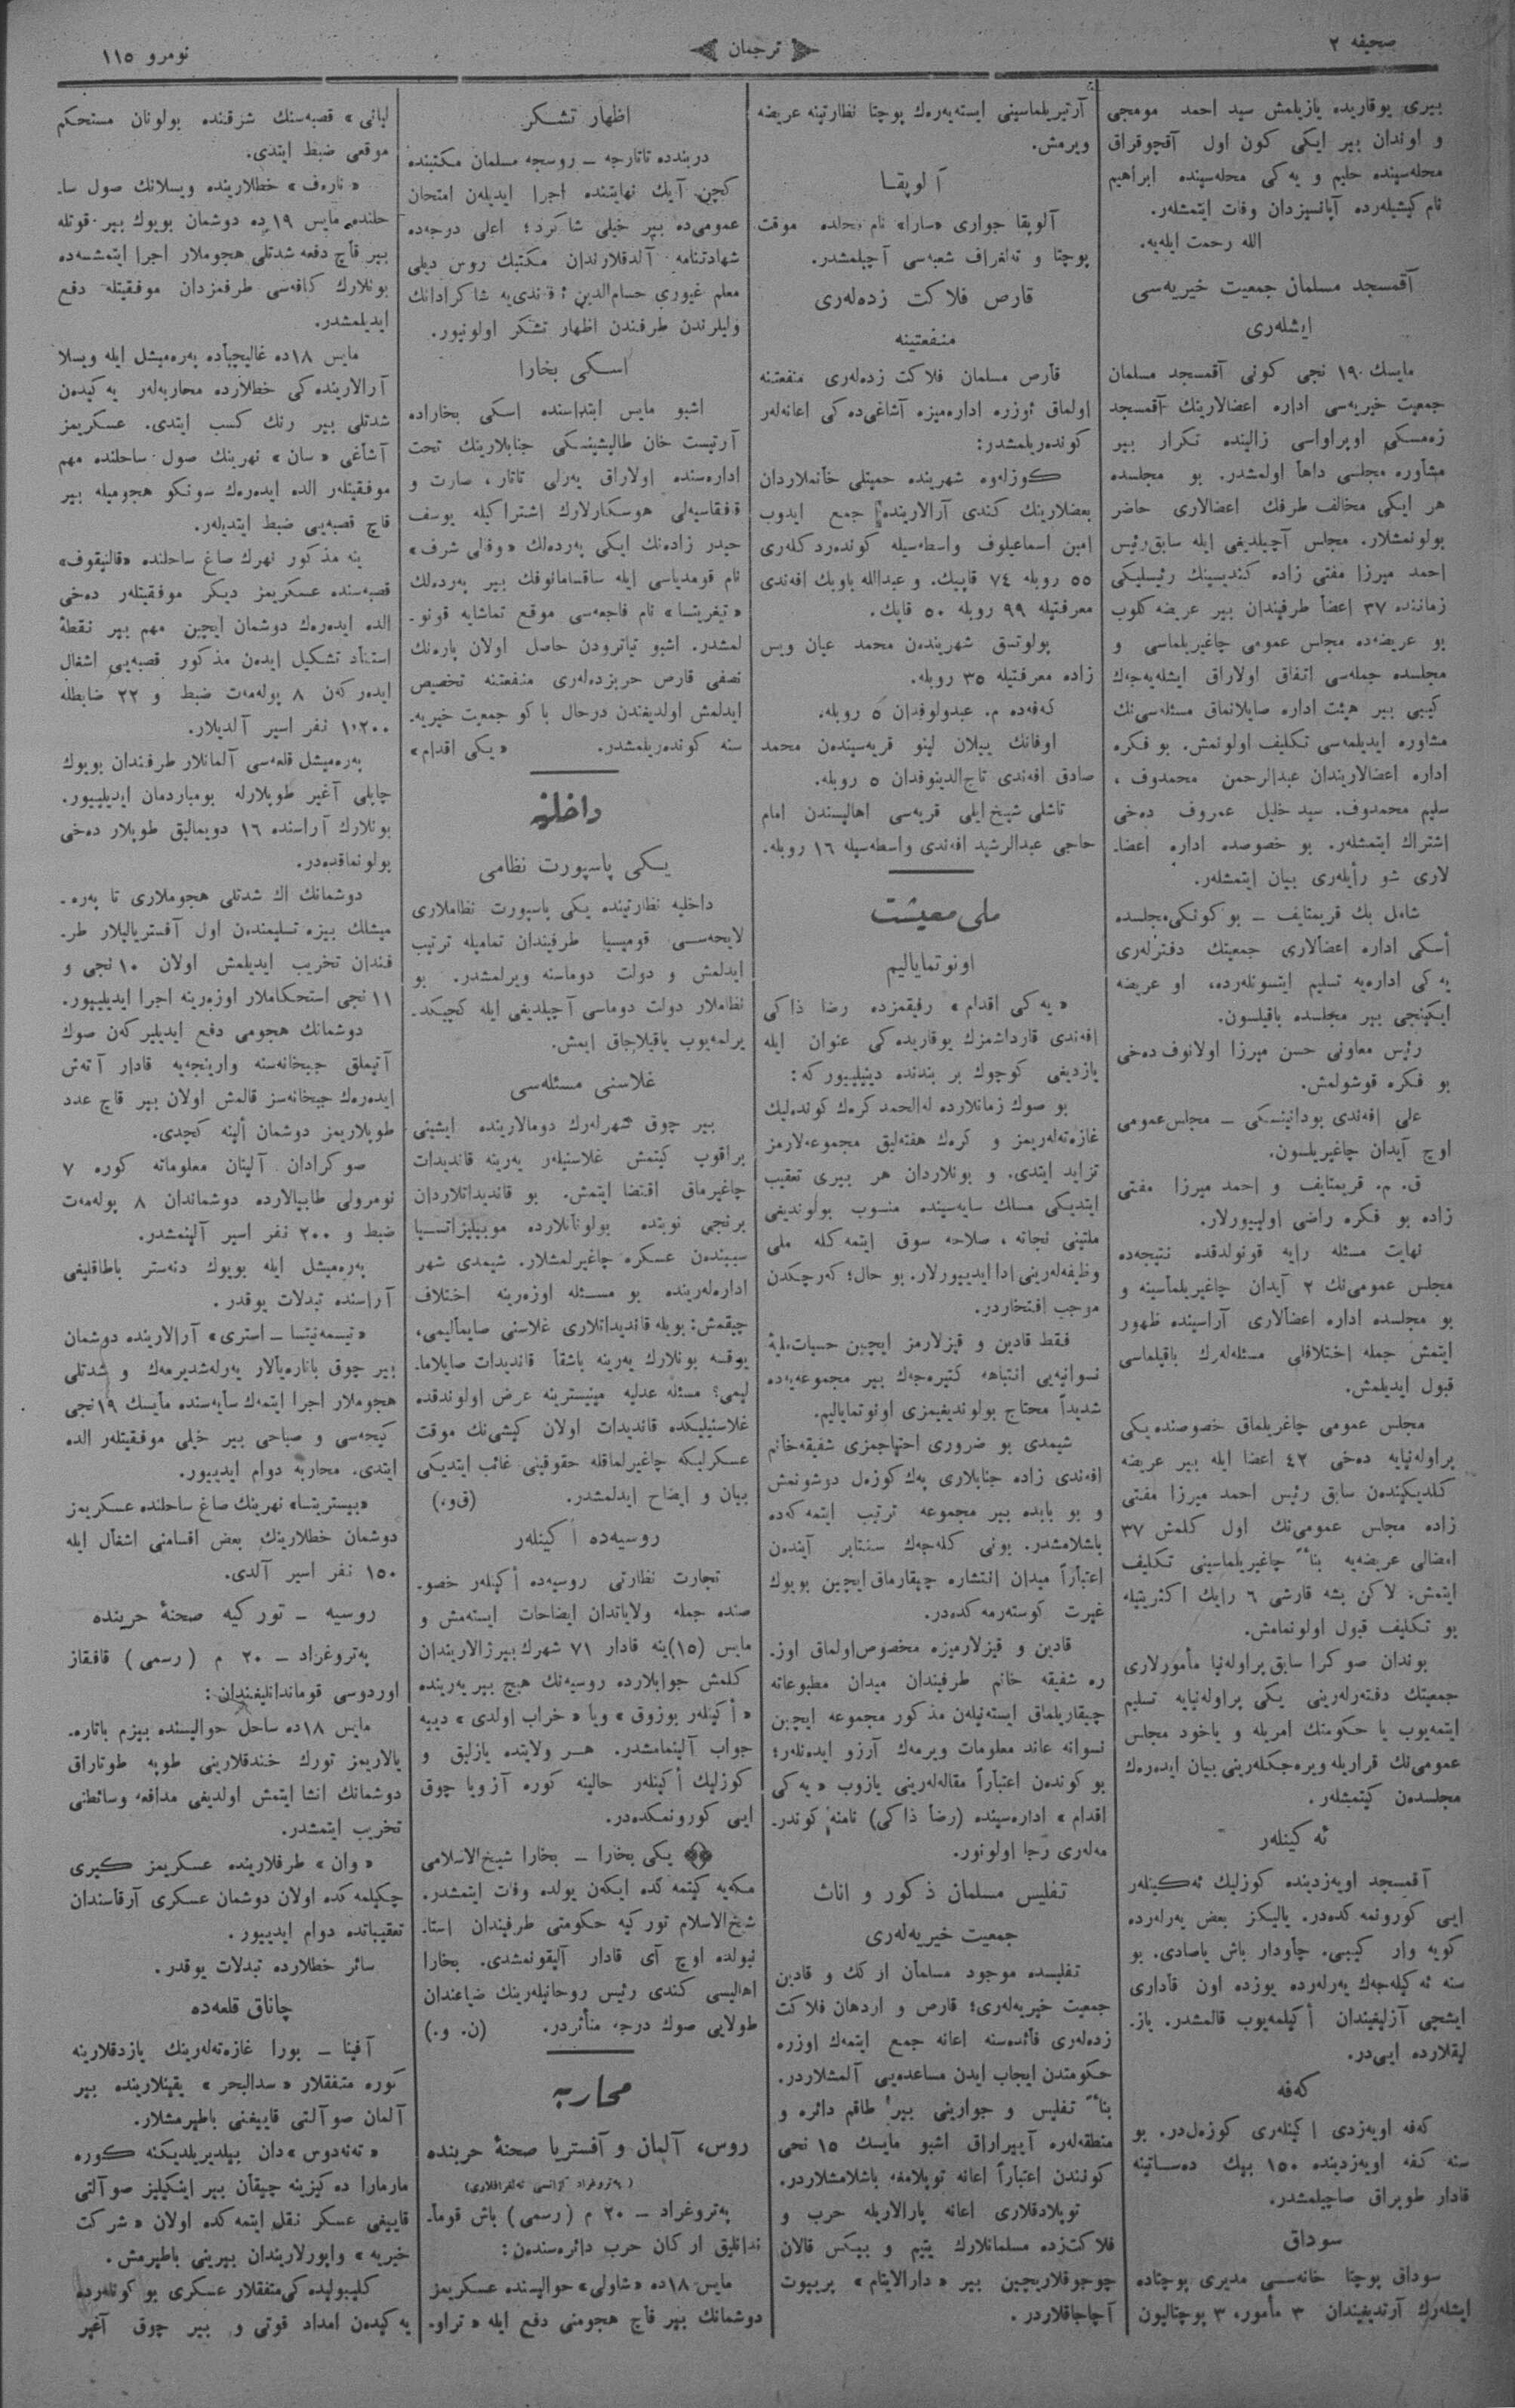 صحیفه ۲
ترجمان
نومرو ۱۱۵
بیری یوقاریده یازیلمش سید احمد مومجی
و اوندان بیر ایکی کون اول آقچوقراق
محله‌سینده حلیم و یه‌کی محله‌سینده ابراهیم
نام کیشیلەرده آپانسیزدان وفات ایتمشلەر.
الله رحمت ایلەیه.
آقمسجد مسلمان جمعیت خیریه‌سی
ایشلەری
مایسك ۱۹ نجی کونی آقمسجد مسلمان
جمعیت خیریه‌سی اداره اعضالارینك آقمسجد
زەمسکی اوپراواسی زالینده تکرار بیر
مشاوره مجلسی داها اولمشدر. بو مجلسده
هر ایکی مخالف طرفك اعضالاری حاضر
بولونمشلار. مجلس آچیلدیغی ایله سابق رئیس
احمد میرزا مفتی زاده کندیسینك رئیسلیکی
زماننده ۳۷ اعضا طرفیندان بیر عریضه کلوب
بو عریضه‌ده مجلس عمومی چاغیریلماسی و
مجلسده جمله‌سی اتفاق اولاراق ایشله‌یه‌جەك
کیبی بیر هیئت اداره صایلانماق مسئله‌سی‌نك
مشاوره ایدیلمه‌سی تکلیف اولونمش. بو فکره
اداره اعضالاریندان عبدالرحمن محمدوف ،
سلیم محمدوف. سید خلیل عمروف ده‌خی
اشتراك ایتمشلەر. بو خصوصده اداره اعضا-
لاری شو رأیلەری بیان ایتمشلەر.
شامل بك قریمتایف ــ بو کونکی مجلسده
أسکی اداره اعضالاری جمعیتك دفترلەری
یه‌کی اداره‌یه تسلیم ایتسونلەرده، او عریضه
ایکینجی بیر مجلسده باقیلسون.
رئیس معاونی حسن میرزا اولانوف ده‌خی
بو فکره قوشولمش.
علی افه‌ندی بودانینسکی ــ مجلس عمومی
اوچ آیدان چاغیریلسون.
ق. م. قریمتایف و احمد میرزا مفتی
زاده بو فکره راضی اولیبورلار.
نهایت مسئله رایه قونولدقده نتیجه‌ده
مجلس عمومی‌نك ۲ آیدان چاغیریلمأسینه و
بو مجلسده اداره اعضألاری آراسینده ظهور
ایتمش جمله اختلافلی مسئلەلەرك باقیلماسی
قبول ایدیلمش.
مجلس عمومی چاغریلماق خصوصنده یکی
پراوله‌نیایه ده‌خی ۴۲ اعضا ایله بیر عریضه
کلدیکیندن سابق رئیس احمد میرزا مفتی
زاده مجلس عمومی‌نك اول کلمش ۳۷
امضالی عریضه‌یه بناءً چاغیریلماسینی تکلیف
ایتمش. لاکن بشه قارشی ۶ رایك اکثریتیله
بو تکلیف قبول اولونمامش.
بوندان صوکرا سابق پراوله‌نیا مأمورلاری
جمعیتك دفتەرلەرینی یکی پراوله‌نیایه تسلیم
ایتمەیوب یا حکومتك امریله و یاخود مجلس
عمومی‌نك قراریله ویره‌جکلەرینی بیان ایدەرەك
مجلسدەن کیتمشلەر.
ئه‌کینلەر
آقمسجد اویەزدینده کوزلیك ئه‌کینلەر
ایی کورونمه‌کده‌در. یالیکز بعض یەرلەرده
کویه وار کیبی. چأودار باش یاصادی. بو
سنه ئه‌کیله‌جەك یەرلەرده یوزده اون قأداری
ایشجی آزلیغیندان أکیلمەیوب قالمشدر. یاز-
لیقلارده ایی‌در.
کەفه
کەفه اویەزدی أکینلەری کوزەل‌در. بو
سنه کفه اویەزدینده ۱۵۰ بیك دەساتینه
قادار طوپراق صاچیلمشدر.
سوداق
سوداق پوچتا خانه‌سی مدیری پوچتاده
ایشلەرك آرتدیغیندان ۳ مأمور، ۳ پوچتالیون
آرتیریلماسینی ایستەیەرەك پوچتا نظارتینه عریضه
ویرمش.
آلوپقا
آلوپقا جواری «سارا» نام محلده موقت
پوچتا و تەلغراف شعبه‌سی آچیلمشدر.
قارص فلاکت زده‌لەری
منفعتینه
قأرص مسلمان فلاکت زده‌لەری منفعتنه
اولماق ئوزره اداره‌میزه آشاغی‌ده‌کی اعانه‌لەر
کوندەریلمشدر:
کوزلەوه شهرینده حمیتلی خأنملاردان
بعضلارینك کندی آرالارینده جمع ایدوب
امین اسماعیلوف واسطه‌سیله کوندەردکلەری
۵۵ روبله ۷۴ قاپیك. و عبدالله باوبك افه‌ندی
معرفتیله ۹۹ روبله ۵۰ قاپك.
پولوتسق شهریندەن محمد عیان ویس
زاده معرفتیله ۳۵ روبله.
کەفه‌ده م. عبدولوفدان ۵ روبله.
اوفانك بیلان لپنو قریه‌سیندەن محمد
صادق افه‌ندی تاج‌الدینوفدان ۵ روبله.
تاشلی شیخ ایلی قریه‌سی اهالیسندن امام
حاجی عبدالرشید افه‌ندی واسطه‌سیله ۱۶ روبله.
ملی معیشت
اونوتمایالیم
«یه‌کی اقدام» رفیقمزده رضا ذاکی
افه‌ندی قارداشمزك یوقاریده‌کی عنوان ایله
یازدیغی کوچوك بر بندنده دینیلیبورکه:
بو صوك زمانلارده له‌الحمد کرەك کوندەلیك
غازەتەلەریمز و کرەك هفته‌لیق مجموعه‌لارمز
تزاید ایتدی. و بونلاردان هر بیری تعقیب
ایتدیکی مسلك سایه‌سینده منسوب بولوندیغی
ملتینی نجاته ، صلاحه سوق ایتمه‌کله ملی
وظیفه‌لەرینی ادا ایدیبورلار. بو حال؛ کەرچکدن
موجب افتخاردر.
فقط قادین و قیزلارمز ایچین حسیات ملیهٔ
نسوانیه‌یی انتباهه کتیره‌جەك بیر مجموعه‌یه‌ده
شدیداً محتاج بولوندیغیمزی اونوتمایالیم.
شیمدی بو ضروری احتیاجمزی شفیقه خأنم
افه‌ندی زاده جنابلاری پەك کوزەل دوشونمش
و بو بابده بیر مجموعه ترتیب ایتمه‌کەده
باشلامشدر. بونی کله‌جەك سنتابر آیندەن
اعتبأراً میدان انتشاره چیقارماق ایچین بویوك
غیرت کوستەرمه‌کده‌در.
قادین و قیزلارمیزه مخصوص اولماق اوز-
ره شفیقه خانم طرفیندان میدان مطبوعاته
چیقاریلماق ایستەنیلەن مذکور مجموعه ایچین
نسوانه عائد معلومات ویرمەك آرزو ایدەنلەر؛
بو کوندەن اعتبأراً مقاله‌لەرینی یازوب «یه‌کی
اقدام» اداره‌سینده (رضأ ذاکی) نامنه کوندر-
مه‌لەری رجا اولونور.
تفلیس مسلمان ذکور و اناث
جمعیت خیریه‌لەری
تفلیسده موجود مسلمأن ارکك و قادین
جمعیت خیریه‌لەری؛ قارص و اردهان فلاکت
زده‌لەری فأئده‌سنه اعانه جمع ایتمەك اوزره
حکومتدن ایجاب ایدن مساعده‌یی آلمشلاردر.
بناءً تفلیس و جوارینی بیر طاقم دائره و
منطقه‌لەره آییراراق اشبو مایسك ۱۵ نجی
کونندن اعتبأراً اعانه توپلامغه باشلامشلاردر.
توپلادقلاری اعانه پارالاریله حرب و
فلاکت‌زده مسلمانلارك یتیم و بیکس قالان
چوجوقلاریچین بیر «دارالایتام» پریبوت
آچاجاقلاردر.
اظهار تشکر
دربندده تاتارجه ــ روسجه مسلمان مکتبنده
کچن آیك نهایتنده اجرا ایدیلەن امتحان
عمومی‌ده بیر خیلی شاکرد؛ اعلی درجه‌ده
شهادتنامه آلدقلارندان مکتبك روس دیلی
معلم غیوری حسام‌الدین افه‌ندی‌یه شاکرادانك
ولیلرندن طرفندن اظهار تشکر اولونیور.
اسکی بخارا
اشبو مایس ابتداسنده اسکی بخاراده
آرتیست خان طالیشینسکی جنابلارینك تحت
اداره‌سنده اولاراق یەرلی تاتار، صارت و
قفقاسیه‌لی هوسکارلارك اشتراکیله یوسف
حیدر زاده‌نك ایکی پەرده‌لك «وفالی شرف»
نام قومدیاسی ایله ساقسامانوقك بیر پەرده‌لك
«تیغریتسا» نام فاجعه‌سی موقع تماشایه قونو-
لمشدر. اشبو تیاترودن حاصل اولان پاره‌نك
نصفی قارص حربزده‌لەری منفعتنه تخصیص
ایدلمش اولدیغندن درحال باکو جمعیت خیریه-
سنه کوندەریلمشدر. «یکی اقدام»
داخلیه
یکی پاسپورت نظامی
داخلیه نظارتینده یکی پاسپورت نظاملاری
لایحه‌سی قومیسیا طرفیندان تمامیله ترتیب
ایدلمش و دولت دوماسنه ویرلمشدر. بو
نظاملار دولت دوماسی آچیلدیغی ایله کچیکد-
یرلمەیوب باقیلاجاق ایمش.
غلاسنی مسئله‌سی
بیر چوق شهرلەرك دومالارینده ایشینی
براقوب کیتمش غلاسنیلەر یەرینه قاندیدات
چاغیرماق اقتضا ایتمش. بو قاندیداتلاردان
برنجی نوبتده بولونأنلارده موبیلیزاتسیا
سببندەن عسکره چاغیرلمشلار. شیمدی شهر
اداره‌لەرینده بو مسئله اوزەرینه اختلاف
چیقمش: بویله قاندیداتلاری غلاسنی صایمألیمی،
یوقسه بونلارك یەرینه باشقأ قاندیدات صایلاما-
لیمی؟ مسئله عدلیه مینیسترینه عرض اولوندقده
غلاسنیلیکده قاندیدات اولان کیشی‌نك موقت
عسکرلیکه چاغیرلماقله حقوقینی غائب ایتدیکی
بیان و ایضاح ایدلمشدر. (ق‌و،)
روسیه‌ده أکینلەر
تجارت نظارتی روسیه‌ده أکینلەر خصو-
صنده جمله ولایاتدان ایضاحات ایستەمش و
مایس (۱۵)ینه قادار ۷۱ شهرك بیرژالاریندان
کلمش جوابلارده روسیه‌نك هیچ بیر یەرینده
«أکینلەر بوزوق» ویأ «خراب اولدی» دییه
جواب آلینمامشدر. هر ولایتده یازلیق و
کوزلیك أکینلەر حالینه کوره آزویا چوق
ایی کورونمکده‌در.
یکی بخارا ــ بخارا شیخ‌الاسلامی
مکه‌یه کیتمه‌کده ایکەن یولده وفات ایتمشدر.
شیخ‌الاسلام تورکیه حکومتی طرفیندان استا-
نبولده اوچ آی قادار آلیقونمشدی. بخارا
اهالیسی کندی رئیس روحانیلەرینك ضیاعندان
طولایی صوك درجه متأثردر. (ن. و.)
محاربه
روس، آلمان و آفستریا صحنهٔ حربنده
(پەتروغراد آژانسی تەلغرافلاری)
پەتروغراد ــ ۲۰ م (رسمی) باش قومأ-
ندانلیق ارکان حرب دائره‌سندەن:
مایس ۱۸ده «شاولی» حوالیسنده عسکریمز
دوشمانك بیر قأج هجومنی دفع ایله «تراو-
لیانی» قصبه‌سنك شرقنده بولونان مستحکم
موقعی ضبط ایتدی.
«نارەف» خطلارینده ویسلانك صول سا-
حلنده مایس ۱۹ده دوشمان بویوك بیر قوتله
بیر قأچ دفعه شدتلی هجوملار اجرا ایتمشسه‌ده
بونلارك کافه‌سی طرفمزدان موفقیتله دفع
ایدیلمشدر.
مایس ۱۸ده غالیچیأده پەرەمیشل ایله ویسلا
آرالارینده‌کی خطلارده محاربه‌لەر یه‌کیدەن
شدتلی بیر رنك کسب ایتدی. عسکریمز
آشأغی «سان» نهرینك صول ساحلنده مهم
موفقیتلەر الده ایدەرەك سونکو هجومیله بیر
قاچ قصبه‌یی ضبط ایتدیلەر.
ینه مذکور نهرك صاغ ساحلنده «قالنیقوف»
قصبه‌سنده عسکریمز دیکر موفقیتلەر ده‌خی
الده ایدەرەك دوشمان ایچین مهم بیر نقطهٔ
استنأد تشکیل ایدەن مذکور قصبه‌یی اشغال
ایدەرکەن ۸ پولەمەت ضبط و ۲۲ ضابطله
۱۲۰۰ نفر اسیر آلدیلار.
پەرەمیشل قلعه‌سی آلمانلار طرفندان بویوك
چاپلی آغیر طوپلارله بومباردمان ایدیلیبور.
بونلارك آراسنده ۱۶ دویمالیق طوپلار ده‌خی
بولونماقده‌در.
دوشمانك اك شدتلی هجوملاری تا پەرە-
میشلك بیزه تسلیمندەن اول آفستریالیلار طر-
فندان تخریب ایدیلمش اولان ۱۰ نجی و
۱۱ نجی استحکاملار اوزەرینه اجرا ایدیلیبور.
دوشمانك هجومی دفع ایدیلیرکەن صوك
آتیملق جبخانه‌سنه وارینجەیه قادار آتەش
ایدەرەك جبخانه‌سز قالمش اولان بیر قاچ عدد
طوپلاریمز دوشمان ألینه کچدی.
صوکرادان آلینان معلوماته کوره ۷
نومرولی طابیالارده دوشماندان ۸ پولەمەت
ضبط و ۲۰۰ نفر اسیر آلینمشدر.
پەرەمیشل ایله بویوك دنەستر باطاقلیغی
آراسنده تبدلات یوقدر.
«تیسمەنیتسا ــ استری» آرالارینده دوشمان
بیر چوق باتارەیألار یەرلەشدیرمەك و شدتلی
هجوملار اجرا ایتمەك سایه‌سنده مایسك ۱۹نجی
کیجه‌سی و صباحی بیر خیلی موفقیتلەر الده
ایتدی. محاربه دوام ایدیبور.
«بیستریتسا» نهرینك صاغ ساحلنده عسکریمز
دوشمان خطلارینك بعض اقسامنی اشغال ایله
۱۵۰ نفر اسیر آلدی.
روسیه ــ تورکیه صحنهٔ حربنده
پەتروغراد ــ ۲۰ م (رسمی) قافقاز
اوردوسی قومانداتلیغندان:
مایس ۱۸ده ساحل حوالیسنده بیزم باتاره-
یالاریمز تورك خندقلارینی طوپه طوتاراق
دوشمانك انشا ایتمش اولدیغی مدافعه وسائطنی
تخریب ایتمشدر.
«وان» طرفلارینده عسکریمز کیری
چکیلمه‌کده اولان دوشمان عسکری آرقأسندان
تعقیباتده دوام ایدیبور.
سائر خطلارده تبدلات یوقدر.
چاناق قلعه‌ده
آفینا ــ بورا غازەتەلەرینك یازدقلارینه
کوره متفقلار «سدالبحر» یقینلارینده بیر
آلمان صوآلتی قایبغنی باطیرمشلار.
«تەنەدوس»دان بیلدیریلدیکنه کوره
مارمارا ده‌کیزینه چیقأن بیر اینکیلیز صوآلتی
قایبغی عسکر نقل ایتمه‌کده اولان «شرکت
خیریه» واپورلاریندان بیرینی باطیرمش.
کلیبولیده‌کی متفقلار عسکری بو کونلەرده
یه‌کیدەن امداد قوتی و بیر چوق آغیر